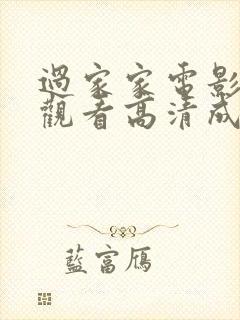 過家家電影
觀看高清成
藍富鴈